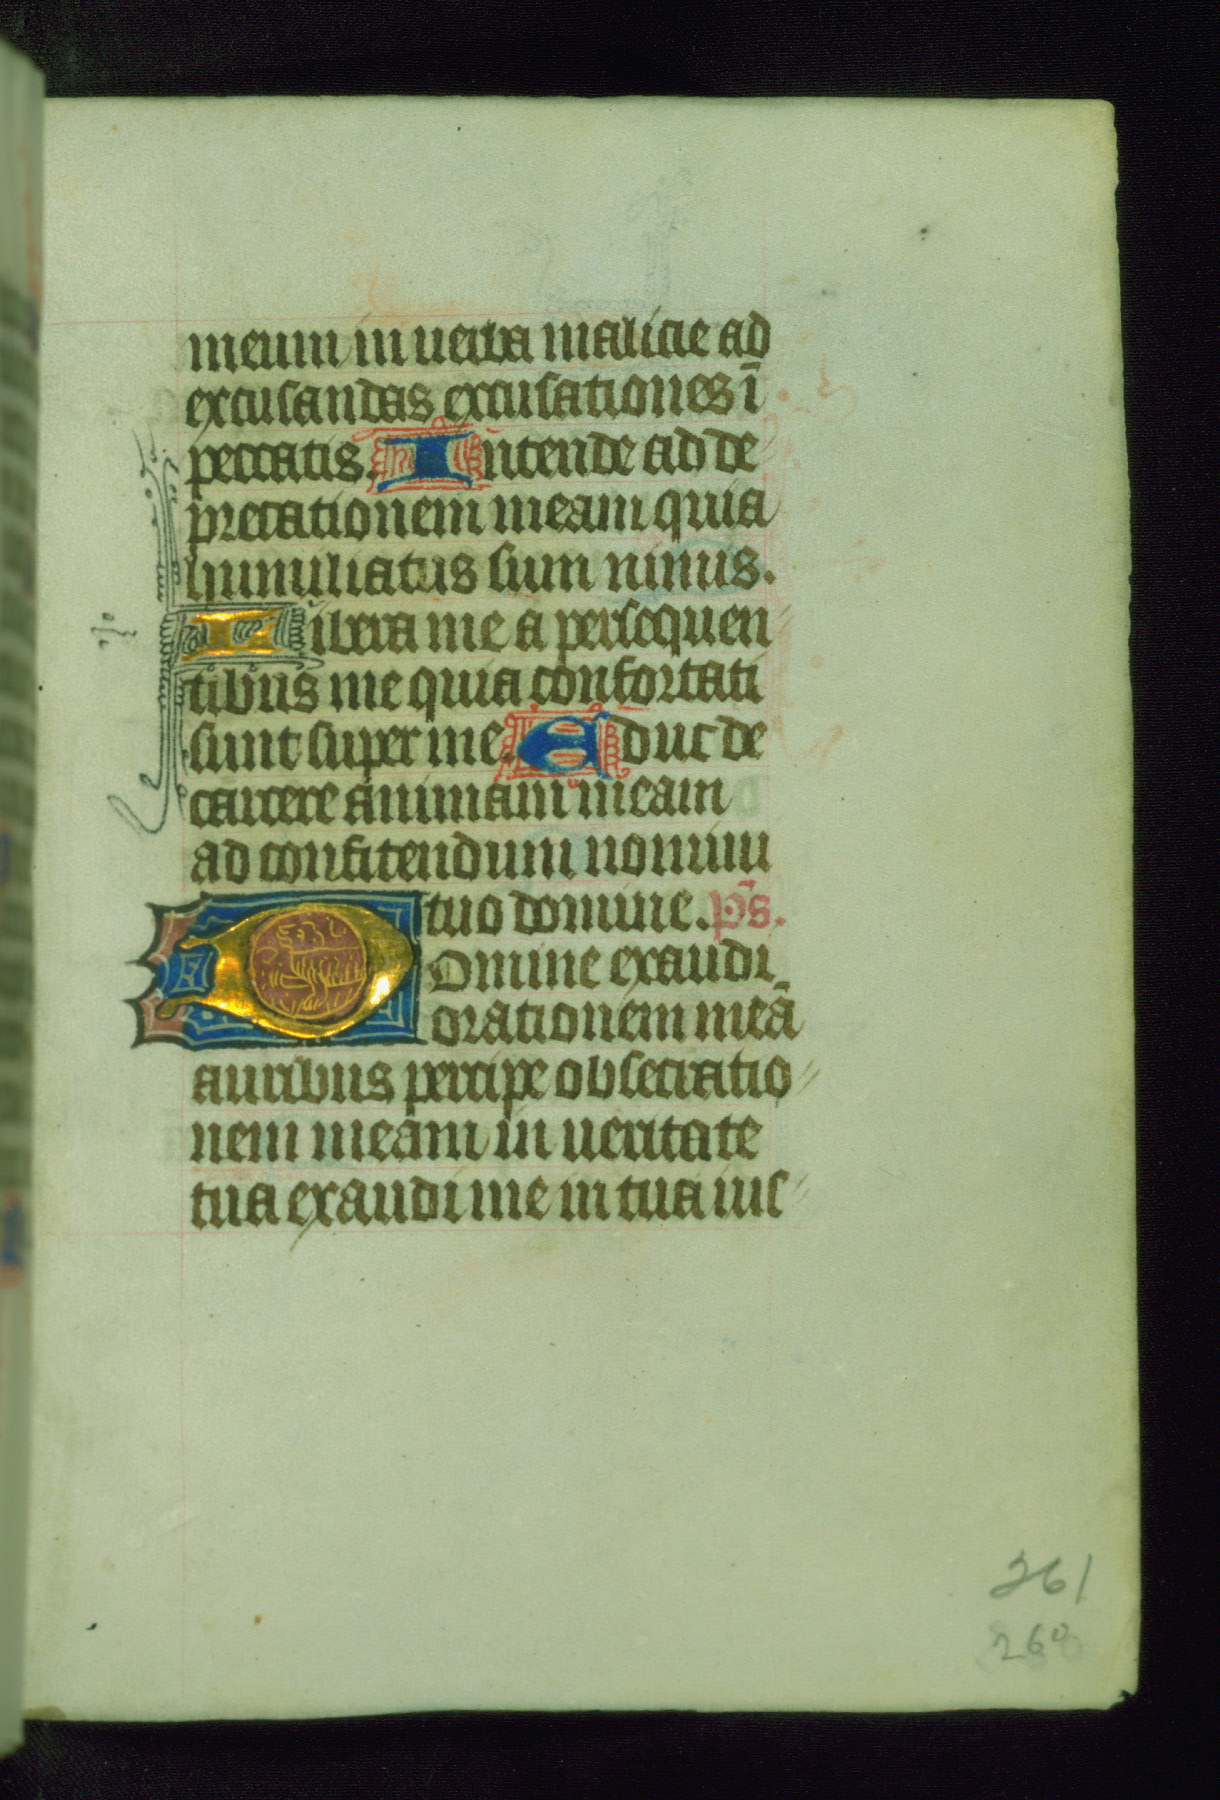 meum in uerba malicie ad
excusandas excusationes ī
peccatis. Intende ad de
precationem meam quia
humiliatus sum nimis.
Libera me a persequen
tibus me quia confortati
sunt super me. Educ de
carcere animam meam
ad confitendum nomini
tuo domine. p̄s.
Domine exaudi
orationem meā
auribus percipe obsecratio
nem meam in ueritate
tua exaudi me in tua ius
261
260